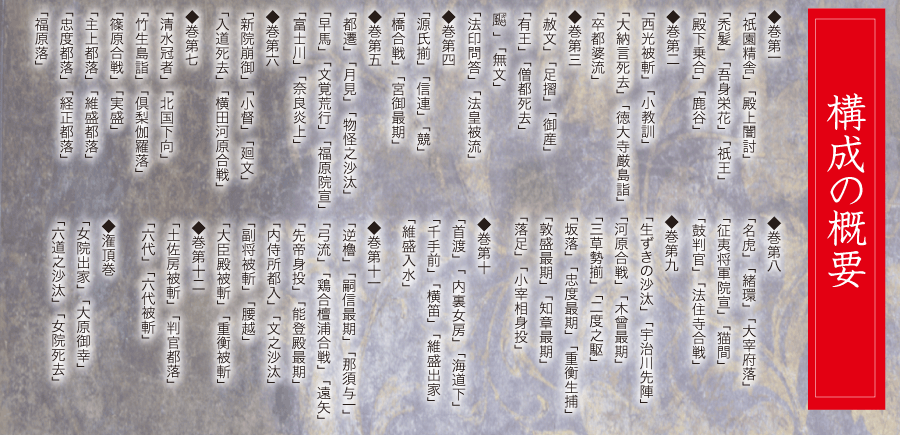 構成の概要
◆巻第一
「祇園精舎」「殿上闇討」
「禿髪」「吾身栄花」「祇王」
「殿下乗合」「鹿谷」
◆巻第二
「西光被斬」「小教訓」
「大納言死去」「徳大寺厳島詣」
「卒都婆流」
◆巻第三
「赦文」「足摺」「御産」
「有王」「僧都死去」
「颷」「無文」
「法印問答」「法皇被流」
◆巻第四
「源氏揃」「信連」「競」
「橋合戦」「宮御最期」
◆巻第五
「都遷」「月見」「物怪之沙汰」
「早馬」「文覚荒行」「福原院宣」
「富士川」「奈良炎上」
◆巻第六
「新院崩御」「小督」「廻文」
「入道死去」「横田河原合戦」
◆巻第七
「清水冠者」「北国下向」
「竹生島詣」「倶梨伽羅落」
「篠原合戦」「実盛」
「主上都落」「維盛都落」
「忠度都落」「経正都落」
「福原落」
◆巻第八
「名虎」「緒環」「大宰府落」
「征夷将軍院宣」「猫間」
「鼓判官」「法住寺合戦」
◆巻第九
「生ずきの沙汰」「宇治川先陣」
「河原合戦」「木曾最期」
「三草勢揃」「二度之駆」
「坂落」「忠度最期」「重衡生捕」
「敦盛最期」「知章最期」
「落足」「小宰相身投」
◆巻第十
「首渡」「内裏女房」「海道下」
「千手前」「横笛」「維盛出家」
「維盛入水」
◆巻第十一
「逆櫓」「嗣信最期」「那須与一」
「弓流」「鶏合壇浦合戦」「遠矢」
「先帝身投」「能登殿最期」
「内侍所都入」「文之沙汰」
「副将被斬」「腰越」
「大臣殿被斬」「重衡被斬」
◆巻第十二
「土佐房被斬」「判官都落」
「六代」「六代被斬」
◆灌頂巻
「女院出家」「大原御幸」
「六道之沙汰」「女院死去」